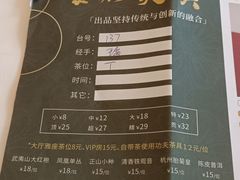 「出品坚持传统与创新的融合」
台号: 137
经手:
茶位: 丁
其他:
小¥8 中¥12 大¥18 特¥23
顶¥25 超¥27 槽¥29 ¥32
"大厅雅座茶位8元、VIP房15元、自带茶使用功夫茶具12元/位
武夷山大红袍 凤凰单丛 正山小种 清香铁观音 杭州胎菊皇 陈皮普洱
¥18/位 ¥15/位 ¥15/位 ¥15/位 ¥18/位 ¥15/位